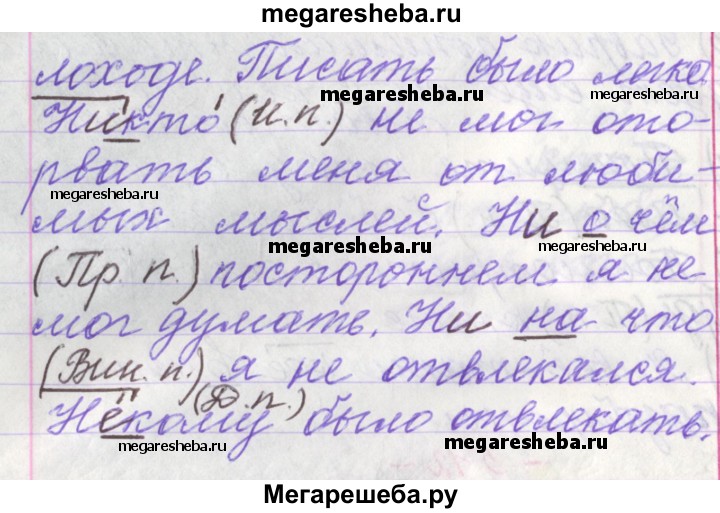 megaresheba.ru
лоходе. Писать было легко.
megaresheba.ru
megaresheba.ru
Никто (И.п.) не мог ото-
рвать меня от люби-
megaresheba.ru
мых мыслей. Ни о чём
megaresheba.ru
megaresheba.ru
(Пр. п.) постороннем я не
мог думать. Ни на что
(Вин. п.) я не отвлекался.
Некому (Д.п.) было отвлекать.
megaresheba.ru
megaresheba.ru
Мегарешеба.ру